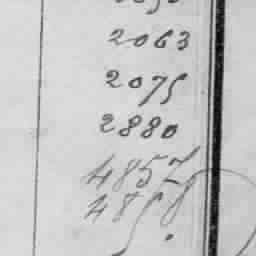 2063
2075
2880
4857
4858